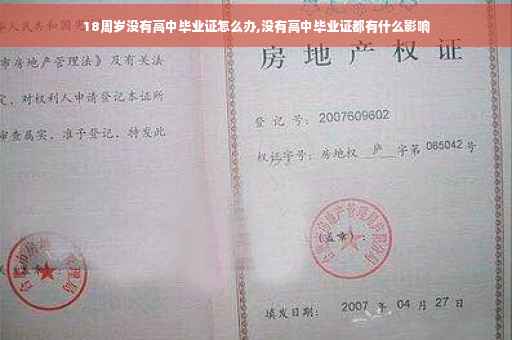 18周岁没有高中毕业证怎么办,没有高中毕业证都有什么影响
市房地产管理法》及有关法
定，对权利人申请登记本证所
审查属实，准予登记，特发此
房地产权证
登记号：2007609602
权证字号：房地权 庐 字第 085042 号
(盖章)：
填发日期： 2007 年 04 月 27 日